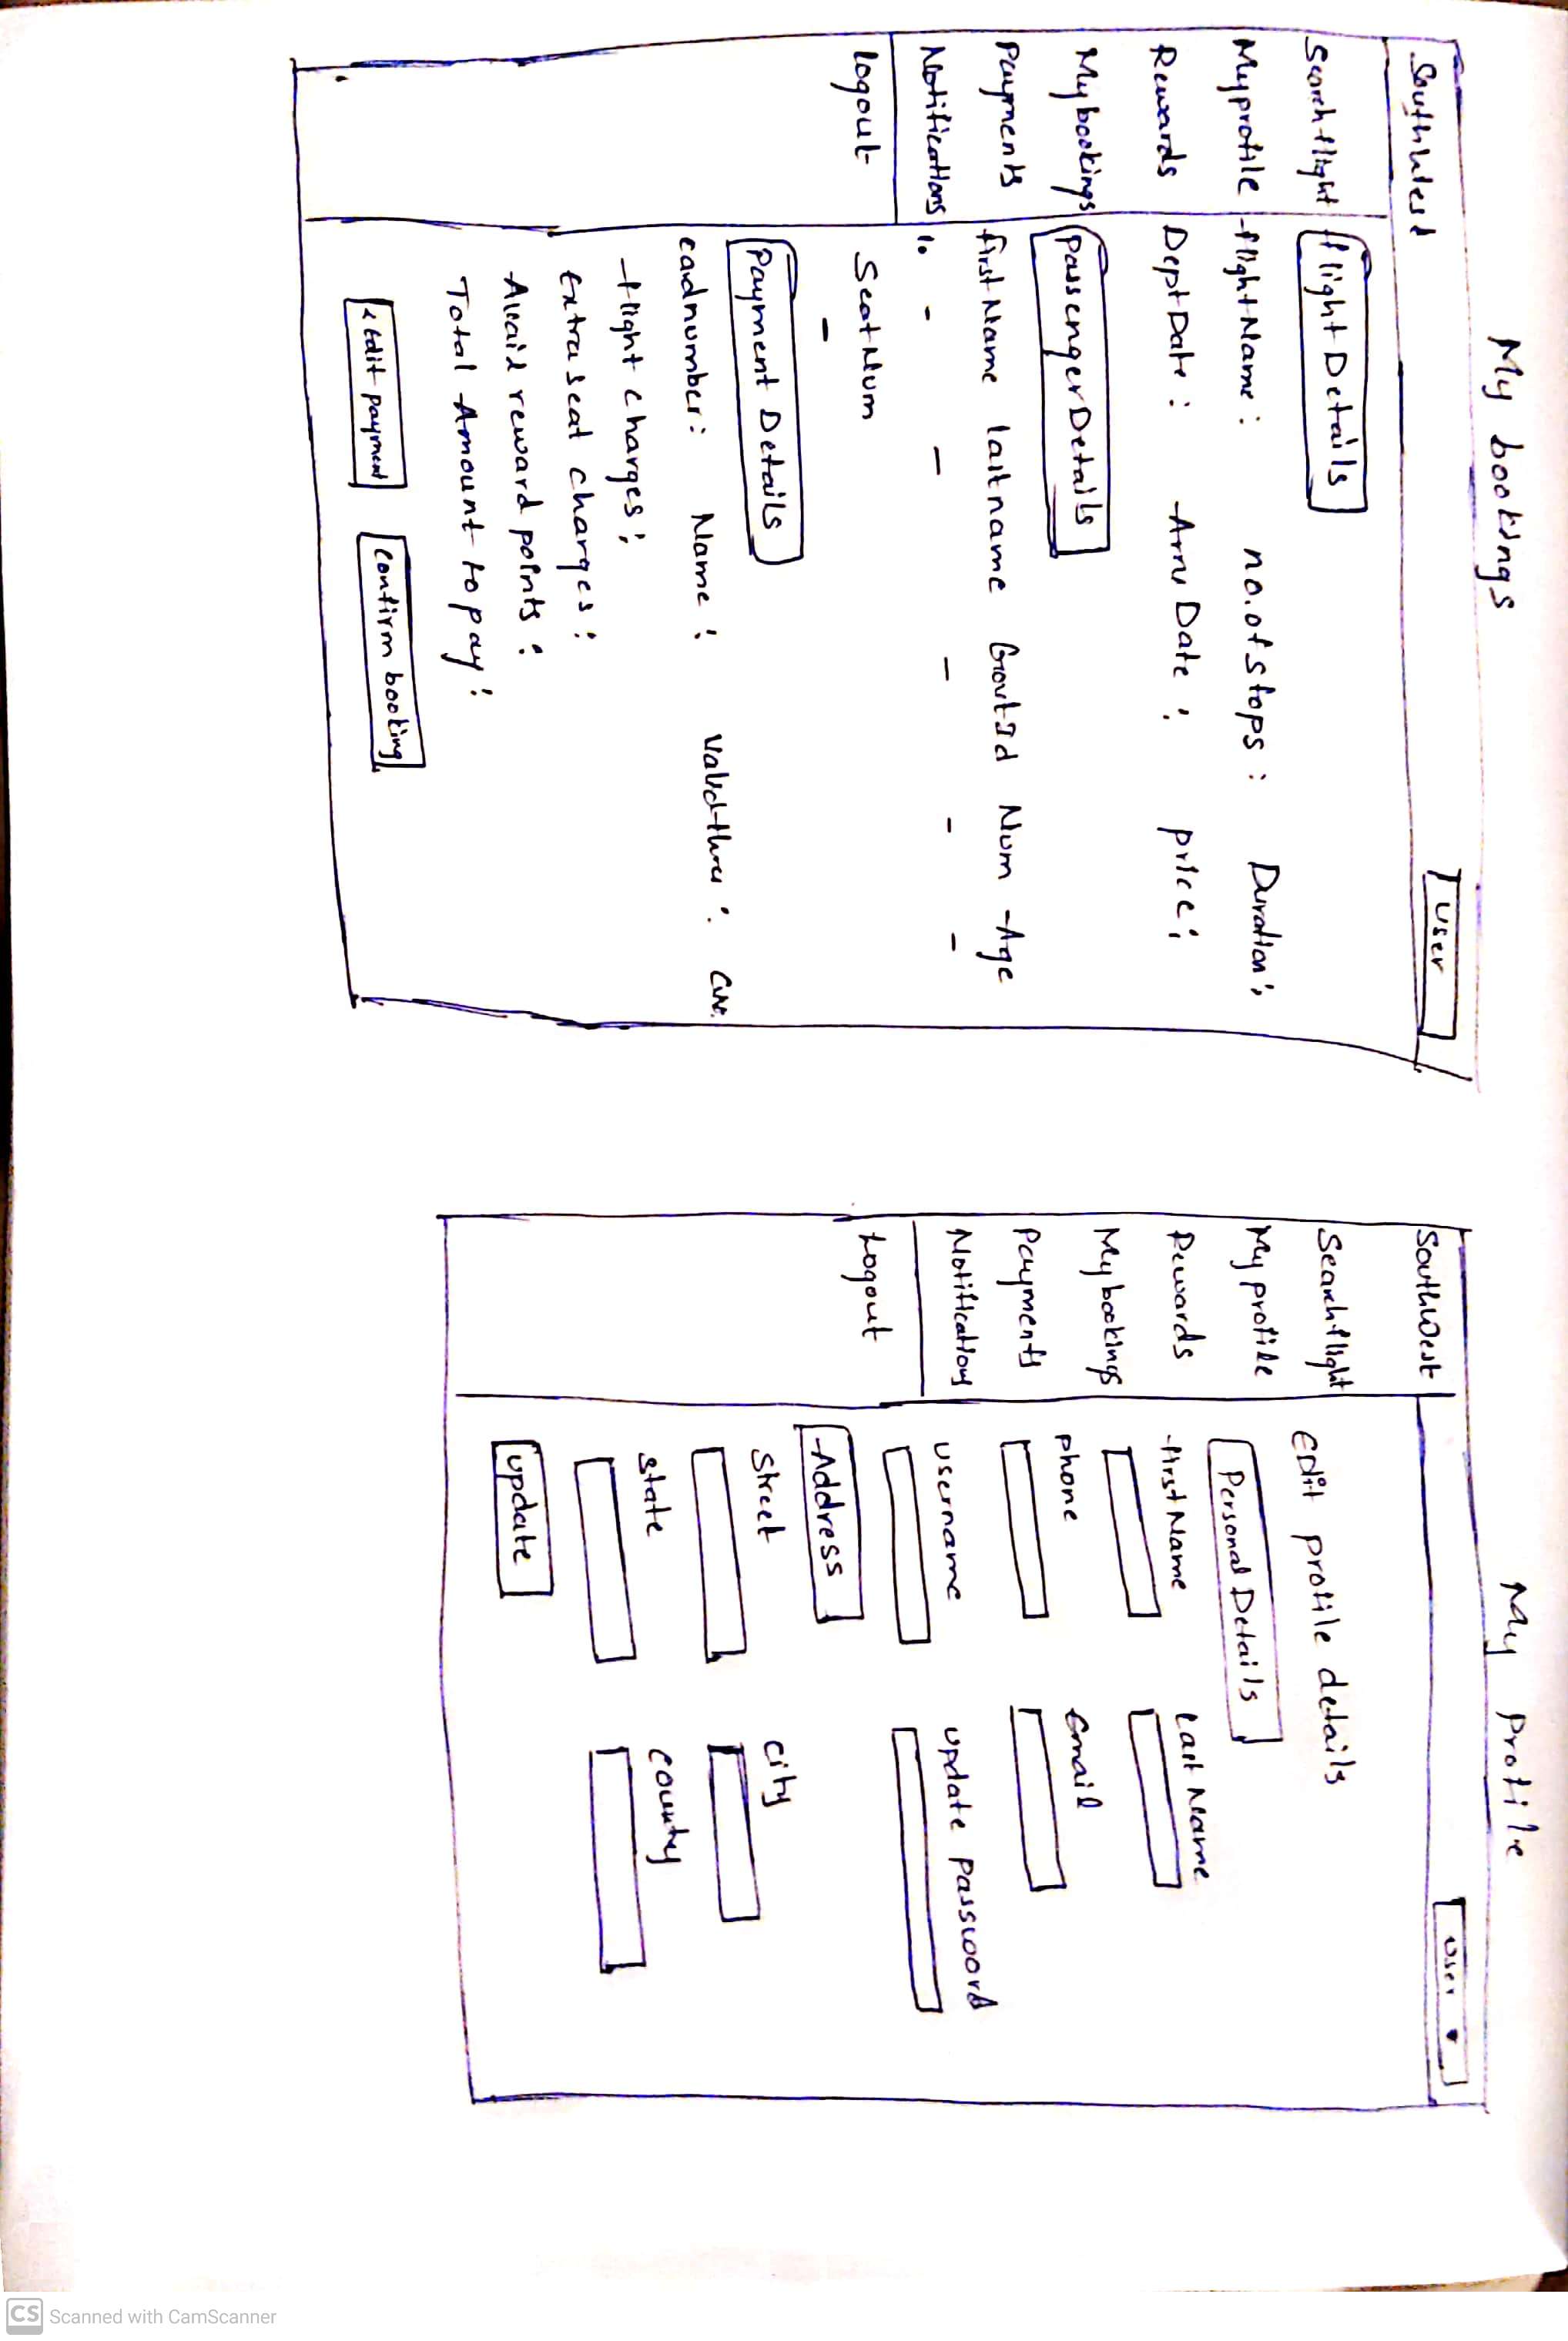 My bookings
Southwest
User
Search flight
My profile
Rewards
My bookings
Payments
Notifications
logout
flight Details
flight Name : no. of stops : Duration :
Dept Date : Arrv Date : price :
Passenger Details
first Name last name Govt Id Num Age
1. - - - - -
Seat Num
-
Payment Details
card number : Name : Valid thru : CVV.
flight charges :
Extra seat charges :
Avail reward points :
Total Amount to pay :
Edit payment
Confirm booking
My Profile
Southwest
User ▾
Search flight
My profile
Rewards
My bookings
Payments
Notification
Logout
Edit profile details
Personal Details
first Name Last Name
phone Email
username update password
Address
Street city
state county
update
CS Scanned with CamScanner